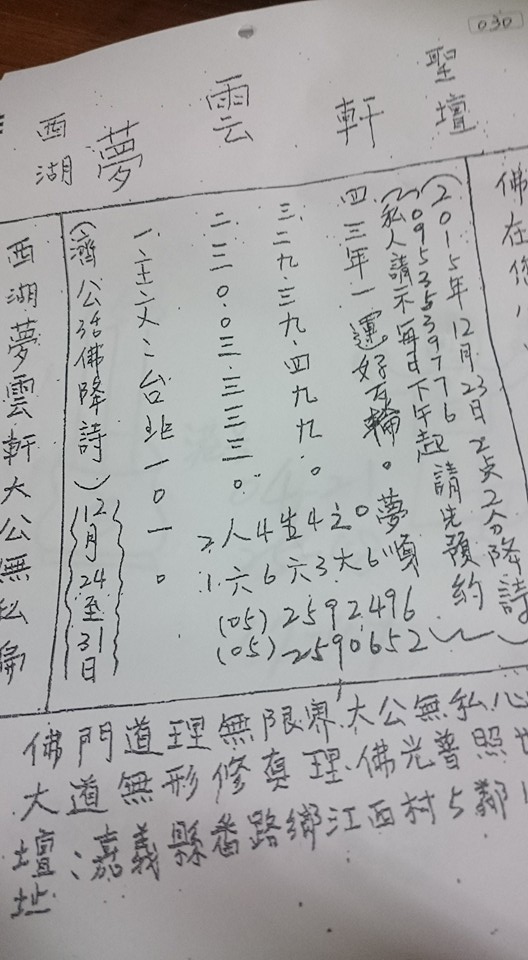 030
西湖夢雲軒聖壇
西湖夢雲軒大公無私
(濟公活佛降詩)(12月24至31日)
二.三0.0三.三三三0.
三.二九.三九.四九九.0
四三年一運好互輪。夢順
2.人4生4之0
1.六6六3大6
(05)2592496
(05)2590652
(私人請示每日下午起請先預約)
(0953539776
(2015年12月23日2点2分降詩)
佛在您
佛門道理無限界.大公無私心
大道無形修真理.佛光普照世
壇址:嘉義縣番路鄉江西村5鄰1